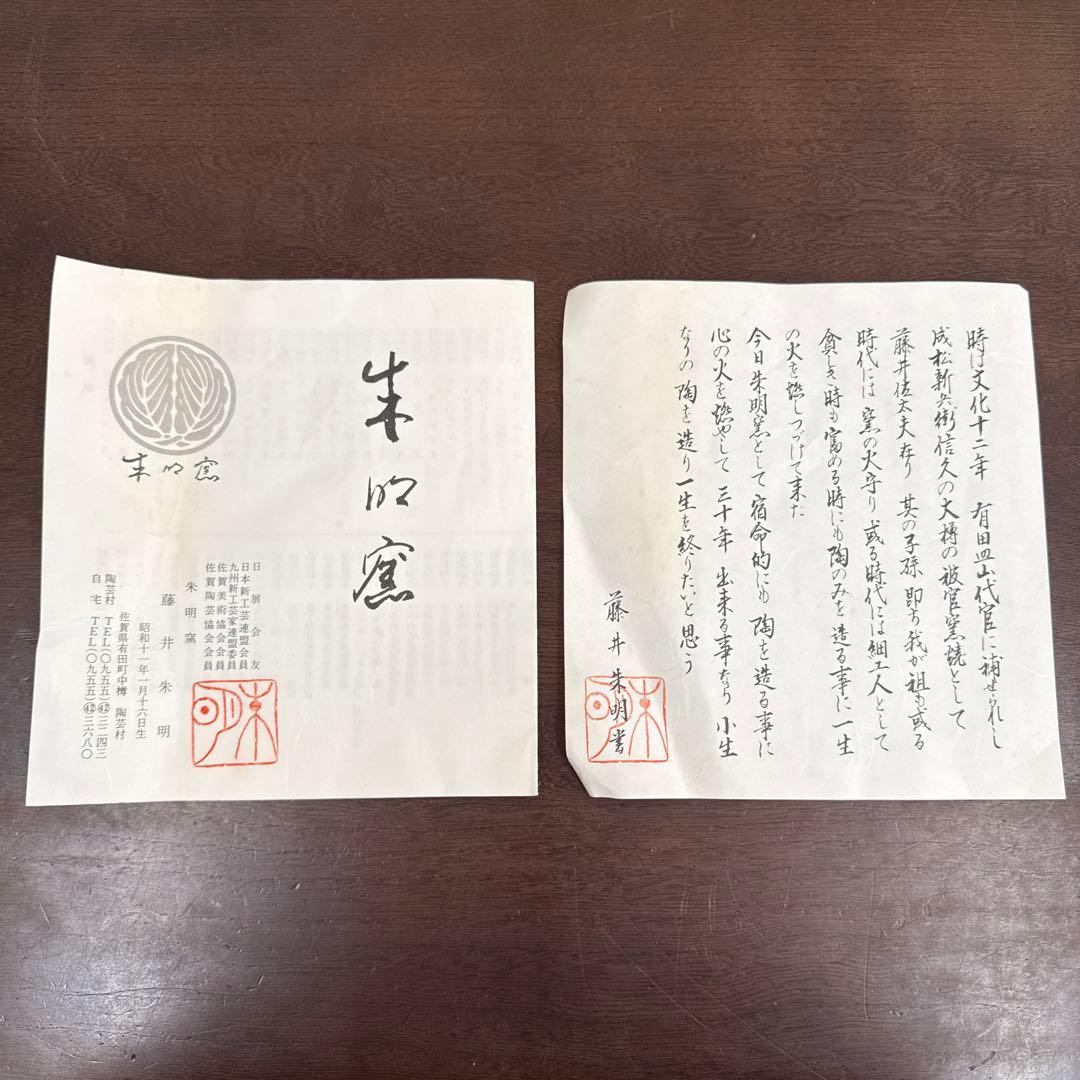 朱明窯
朱明窯
日展会友
日本新工芸連盟会員
九州新工芸家連盟委員
佐賀美術協会会員
佐賀陶芸協会会員
朱明窯
藤井朱明
昭和十一年一月十六日生
佐賀県有田町中樽 陶芸村
陶芸村 TEL(〇九五五)㊷三二四三
自宅 TEL(〇九五五)㊷三六八〇
朱明
時は文化十二年 有田皿山代官に補せられし
成松新兵衛信久の大樽の被官窯焼として
藤井佐太夫在り 其の子孫 即ち我が祖も或る
時代には 窯の火守り 或る時代には細工人として
貧しき時も富める時にも陶のみを造る事に一生
の火を燃しつづけて来た
今日朱明窯として宿命的にも 陶を造る事に
心の火を燃やして 三十年 出来る事なら 小生
なりの 陶を造り一生を終りたいと思う
藤井朱明書
朱明